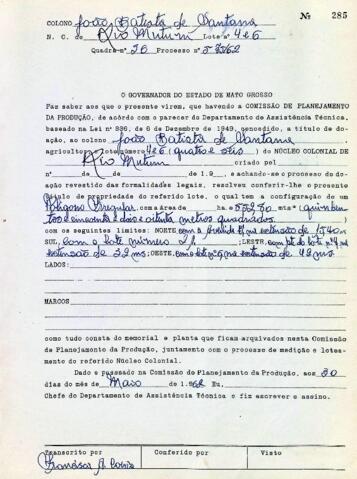 Nº 285
COLONO João Batista de Santana
N. C. de Rio Mutum Lote nº 4 e 6
Quadra nº 26 Processo nº
O GOVERNADOR DO ESTADO DE MATO GROSSO
Faz saber aos que o presente virem, que havendo a COMISSÃO DE PLANEJAMENTO
DA PRODUÇÃO, de acôrdo com o parecer do Departamento de Assistência Técnica,
baseado na Lei nº 336, de 6 de Dezembro de 1949, concedido, a título de doa-
ção, ao colono João Batista de Santana
agricultor lote número 4 e 6 (quatro e seis) do NÚCLEO COLONIAL DE
Rio Mutum criado pel
nº de de de 1.9 , e achando-se o processo de do-
ação revestido das formalidades legais, resolveu conferir-lhe o presente
título de propriedade do referido lote, o qual tem a configuração de um
Polígono Irregular com a área de mts² (quinhen-
tos e cincoenta e dois e oitenta metros quadrados
com os seguintes limites: NORTE, com a na extensão de
SUL, com o lote número LESTE, com do lote nº na
extensão de 32 ms; OESTE, com o lote nº na extensão de 42 ms
LADOS:
MARCOS
como tudo consta do memorial e planta que ficam arquivados nesta Comissão
de Planejamento da Produção, juntamente com o processo de medição e lotea-
mento do referido Núcleo Colonial.
Dado e passado na Comissão de Planejamento da Produção, aos 30
dias do mês de Maio de 1.962 Eu,
Chefe do Departamento de Assistência Técnica o fiz escrever e assino.
Transcrito por Conferido por Visto
Francisca